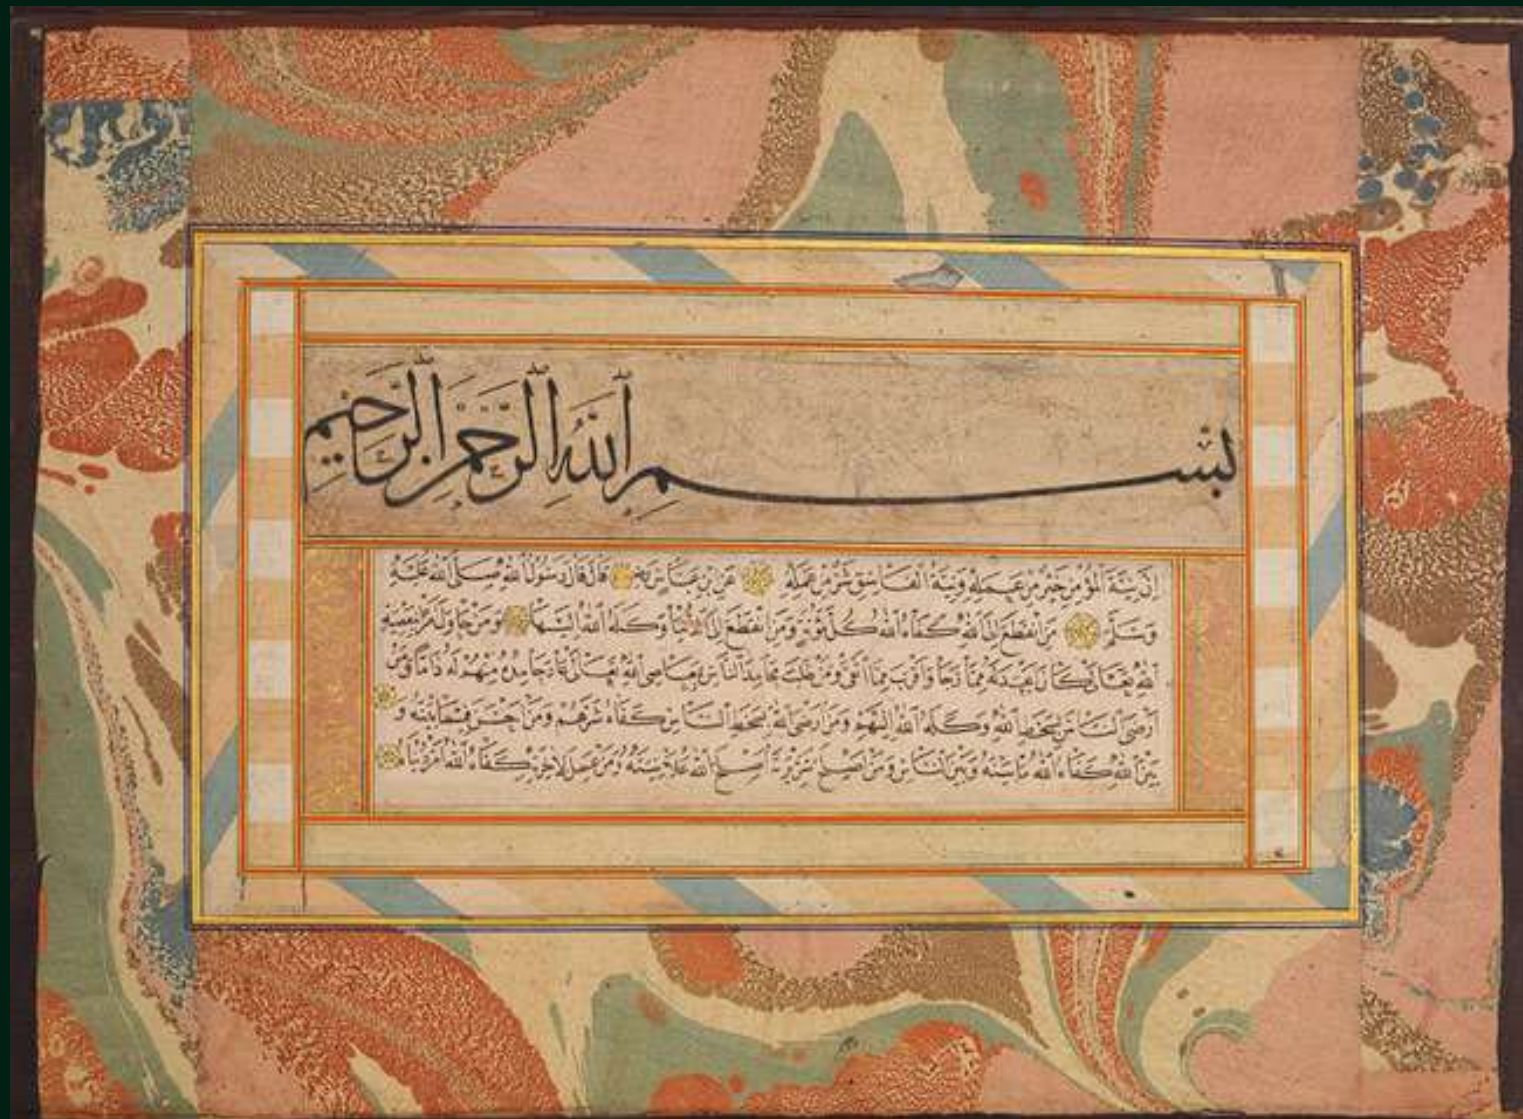 بسم الله الرحمن الرحيم
ان نية المؤمن خير من عمله ونية الفاسق شر من عمله عن ابن عباس رضي قال قال رسول الله صلى الله عليه
وسلم من انقطع الى الله كفاه الله كل مؤنة ومن انقطع الى الدنيا وكله الله اليها ومن حاول امرا بمعصية
الله تعالى كان ابعد له مما رجا واقرب مما اتقى ومن طلب محامد الناس بمعاصي الله تعالى عاد حامده منهم له ذاما ومن
ارضى الناس بسخط الله وكله الله اليهم ومن ارضى الله بسخط الناس كفاه شرهم ومن احسن فيما بينه و
بين الله كفاه الله ما بينه وبين الناس ومن اصلح سريرته اصلح الله علانيته ومن عمل لاخرته كفاه الله امر دنياه